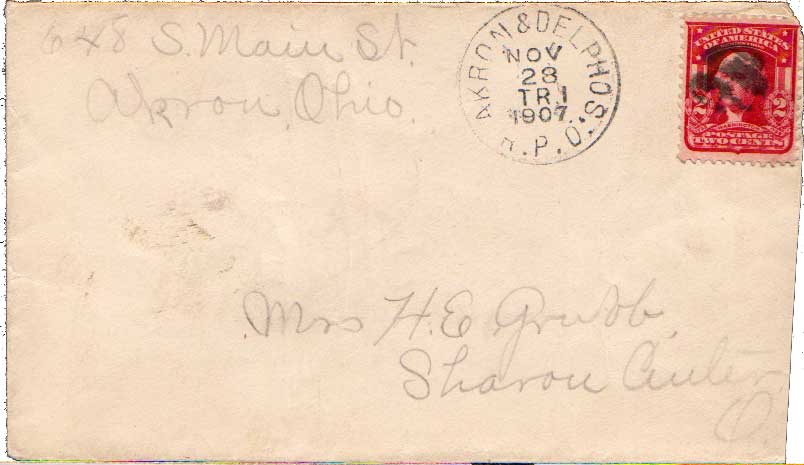 648 S. Main St.
Akron, Ohio.
AKRON & DELPHOS.
NOV
28
TR 1
1907.
R.P.O.
UNITED STATES
OF AMERICA
2 2
WASHINGTON
POSTAGE
TWO CENTS
Mrs H. E. Grubb,
Sharon Center
O.